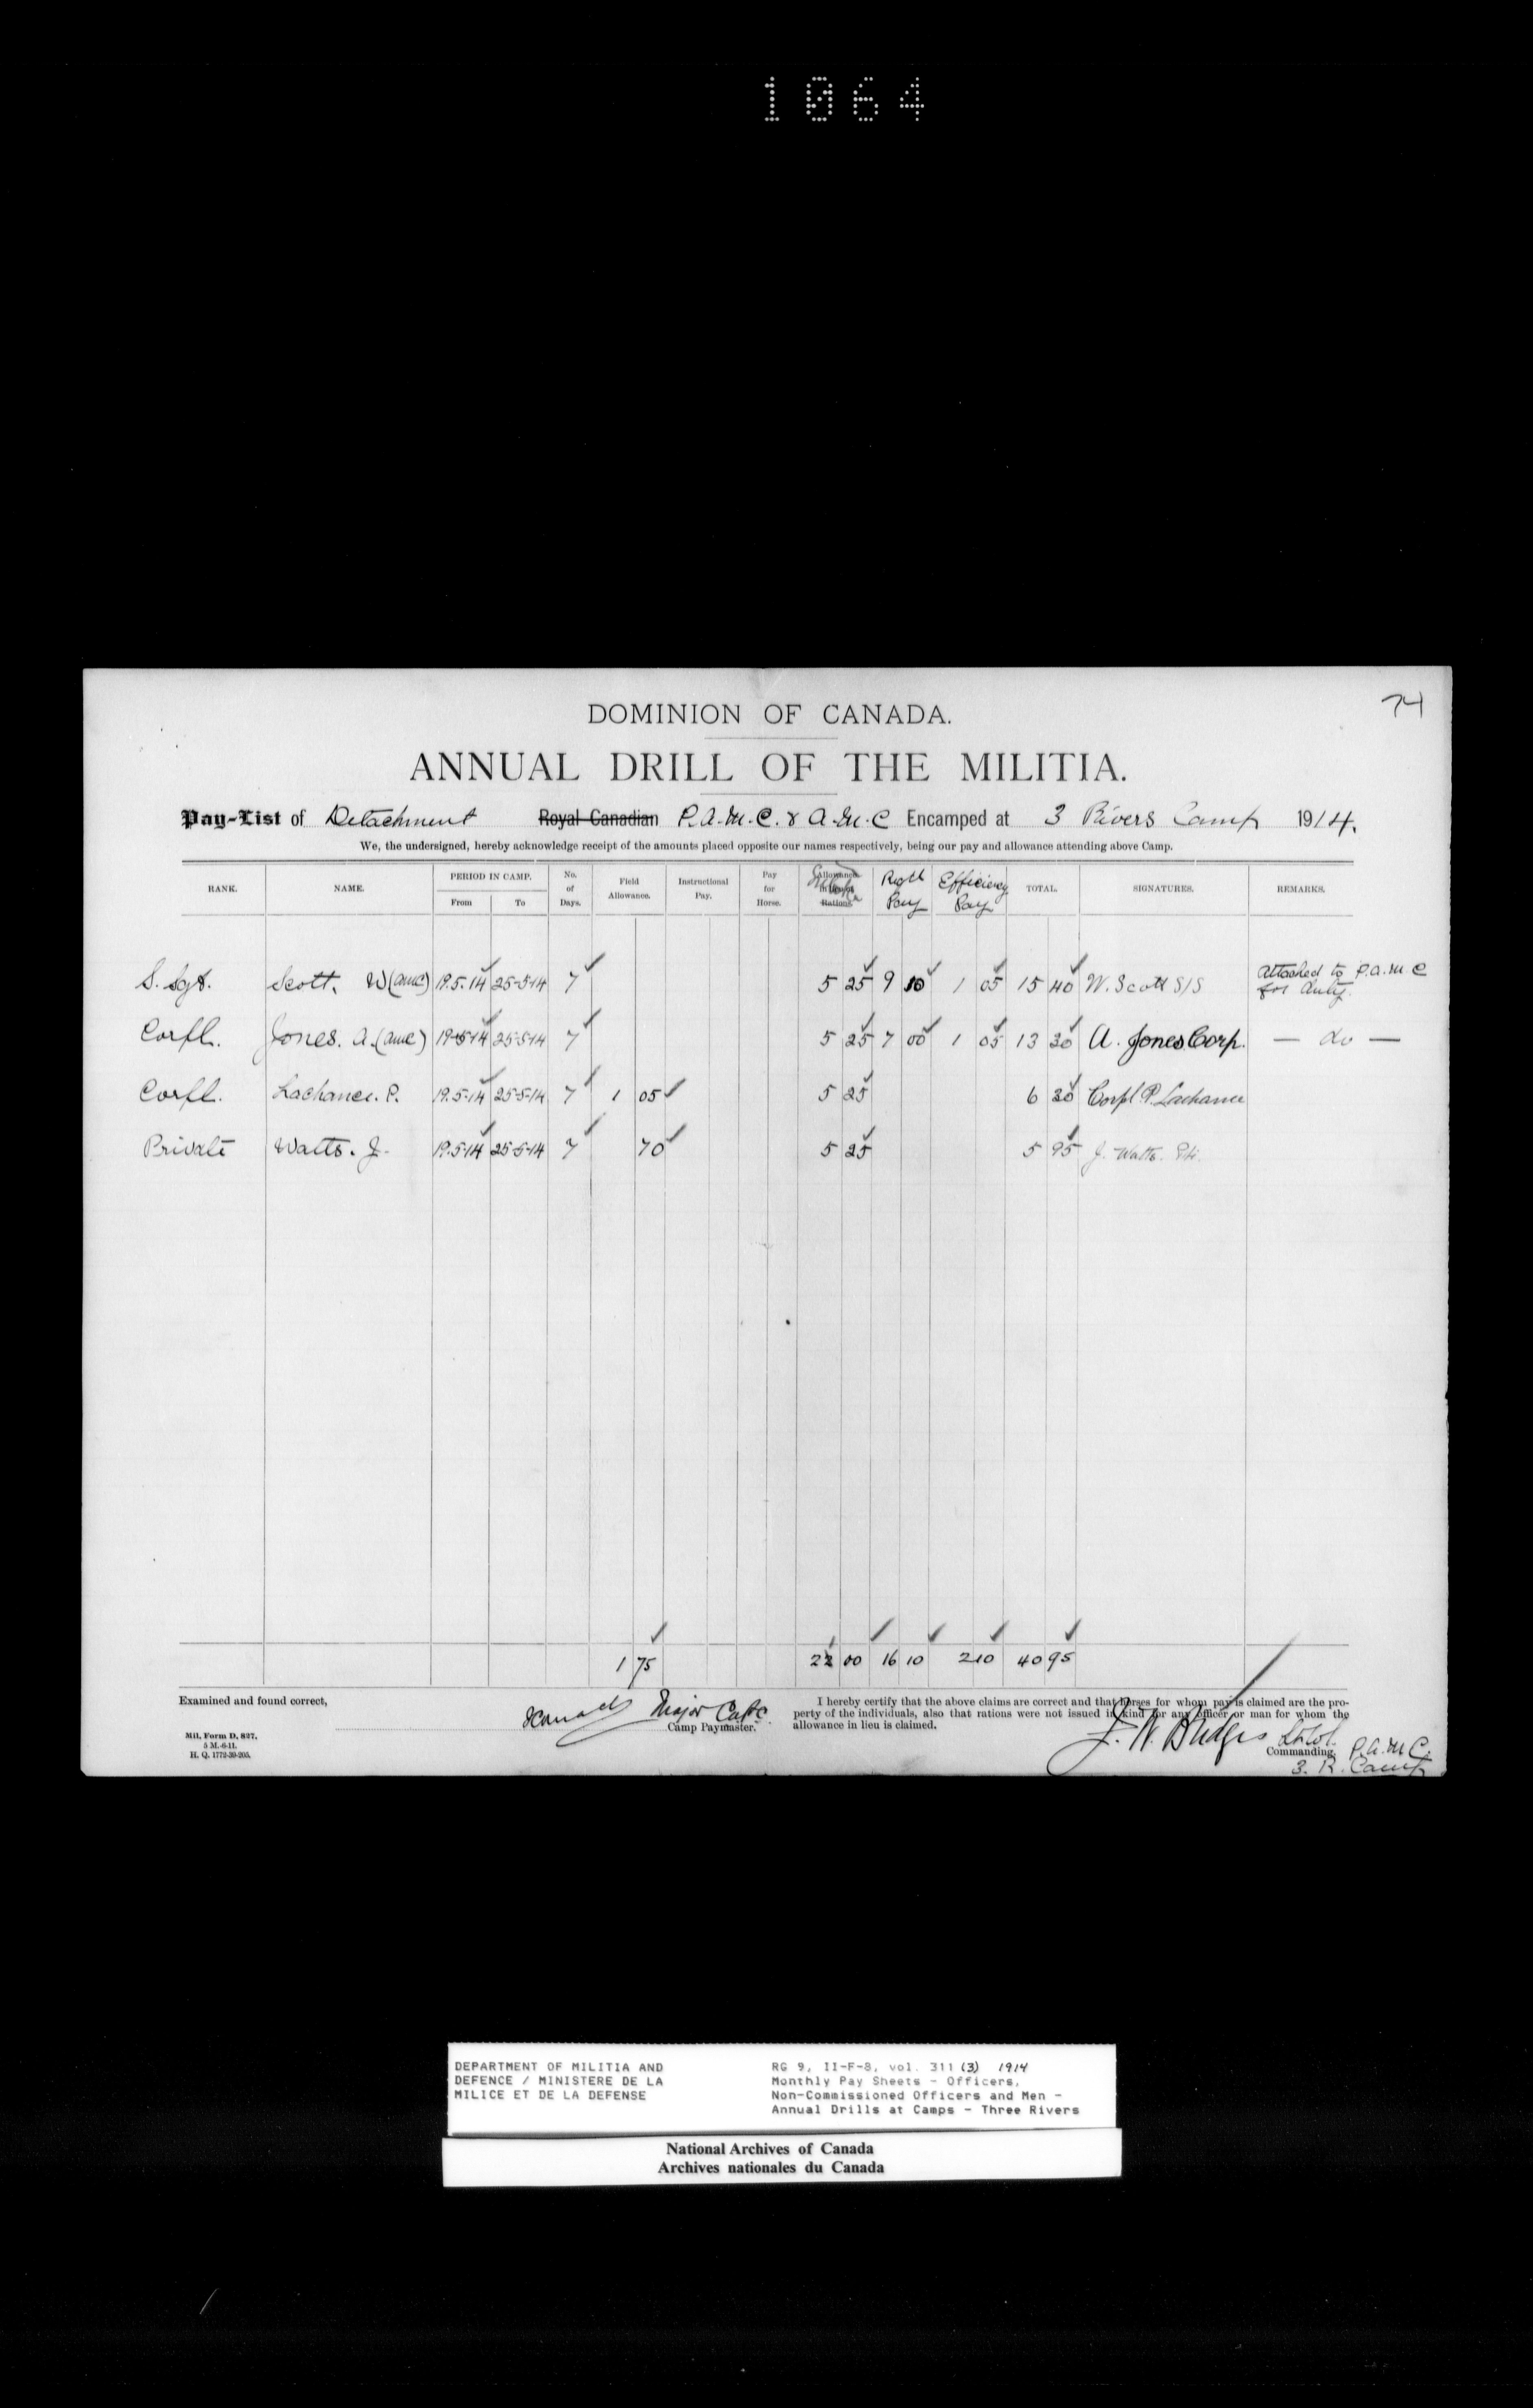 1064
74
DOMINION OF CANADA.
ANNUAL DRILL OF THE MILITIA.
Pay-List of Detachment Royal Canadian P.A.M.C. & A.M.C Encamped at 3 Rivers Camp 1914.
We, the undersigned, hereby acknowledge receipt of the amounts placed opposite our names respectively, being our pay and allowance attending above Camp.
RANK. NAME. PERIOD IN CAMP. From To No. of Days. Field Allowance. Instructional Pay. Pay for Horse. Allowance Rations Regtl Pay Efficiency Pay TOTAL. SIGNATURES. REMARKS.
S. Sgt. Scott. W (amc) 19.5.14 25-5-14 7 5 25 9 10 1 05 15 40 W. Scott S/S Attached to P.A.M.C for duty.
Corpl. Jones. A. (amc) 19-5-14 25-5-14 7 5 25 7 00 1 05 13 30 A. Jones Corp. — do —
Corpl. Lachance. P. 19.5-14 25-5-14 7 1 05 5 25 6 30 Corpl P. Lachance
Private Watts. J. 19.5-14 25-5-14 7 70 5 25 5 95 J. Watts. Pte.
1 75 22 00 16 10 2 10 40 95
Examined and found correct,
Major Capc.
Camp Paymaster.
I hereby certify that the above claims are correct and that horses for whom pay is claimed are the property of the individuals, also that rations were not issued in kind for any officer or man for whom the allowance in lieu is claimed.
Lt. Col.
Commanding, P.A.M.C.
3. R. Camp
Mil. Form D. 827.
5 M.-6-11.
H. Q. 1772-39-205.
DEPARTMENT OF MILITIA AND
DEFENCE / MINISTERE DE LA
MILICE ET DE LA DEFENSE
RG 9, II-F-8, vol. 311 (3) 1914
Monthly Pay Sheets - Officers,
Non-Commissioned Officers and Men -
Annual Drills at Camps - Three Rivers
National Archives of Canada
Archives nationales du Canada